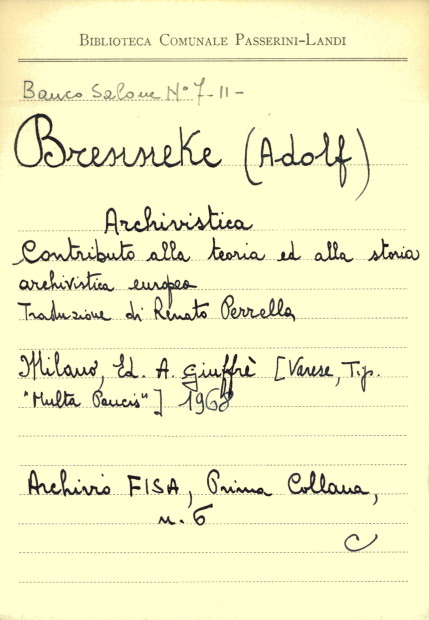 BIBLIOTECA COMUNALE PASSERINI-LANDI
Banco Salone N° 7-II-
Brenneke (Adolf)
Archivistica
Contributo alla teoria ed alla storia
archivistica europea
Traduzione di Renato Perrella
Milano, Ed. A. Giuffrè [Varese, Tip.
"Multa Paucis"] 1968
Archivio FISA, Prima Collana,
n. 6
C